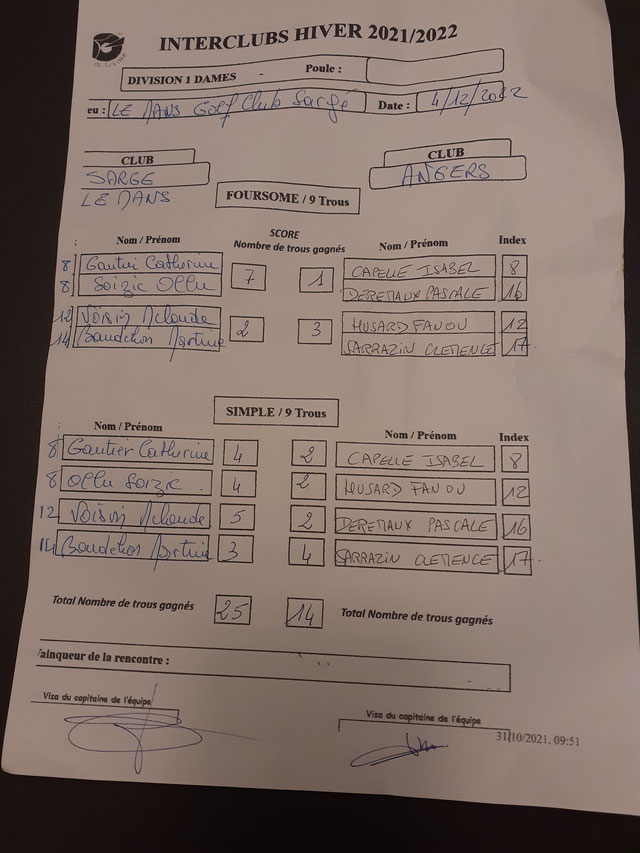 INTERCLUBS HIVER 2021/2022
DIVISION 1 DAMES - Poule :
eu : LE MANS Golf Club Sargé Date : 4/12/2022
CLUB CLUB
SARGE ANGERS
LE MANS
FOURSOME / 9 Trous
SCORE
Nom / Prénom Nombre de trous gagnés Nom / Prénom Index
8 Gautier Catherine 7 1 CAPELLE ISABEL 8
8 Soizic Ollu DEREMAUX PASCALE 16
12 Voisin 2 3 HUSARD FANOU 12
14 Martine SARRAZIN CLEMENCE 17
SIMPLE / 9 Trous
Nom / Prénom Nom / Prénom Index
8 Gautier Catherine 4 2 CAPELLE ISABEL 8
8 Ollu Soizic . 4 2 HUSARD FANOU 12
12 Voisin 5 2 DEREMAUX PASCALE 16
14 Martine 3 4 SARRAZIN CLEMENCE 17
Total Nombre de trous gagnés 25 14 Total Nombre de trous gagnés
ainqueur de la rencontre :
Visa du capitaine de l'équipe Visa du capitaine de l'équipe
31/10/2021, 09:51